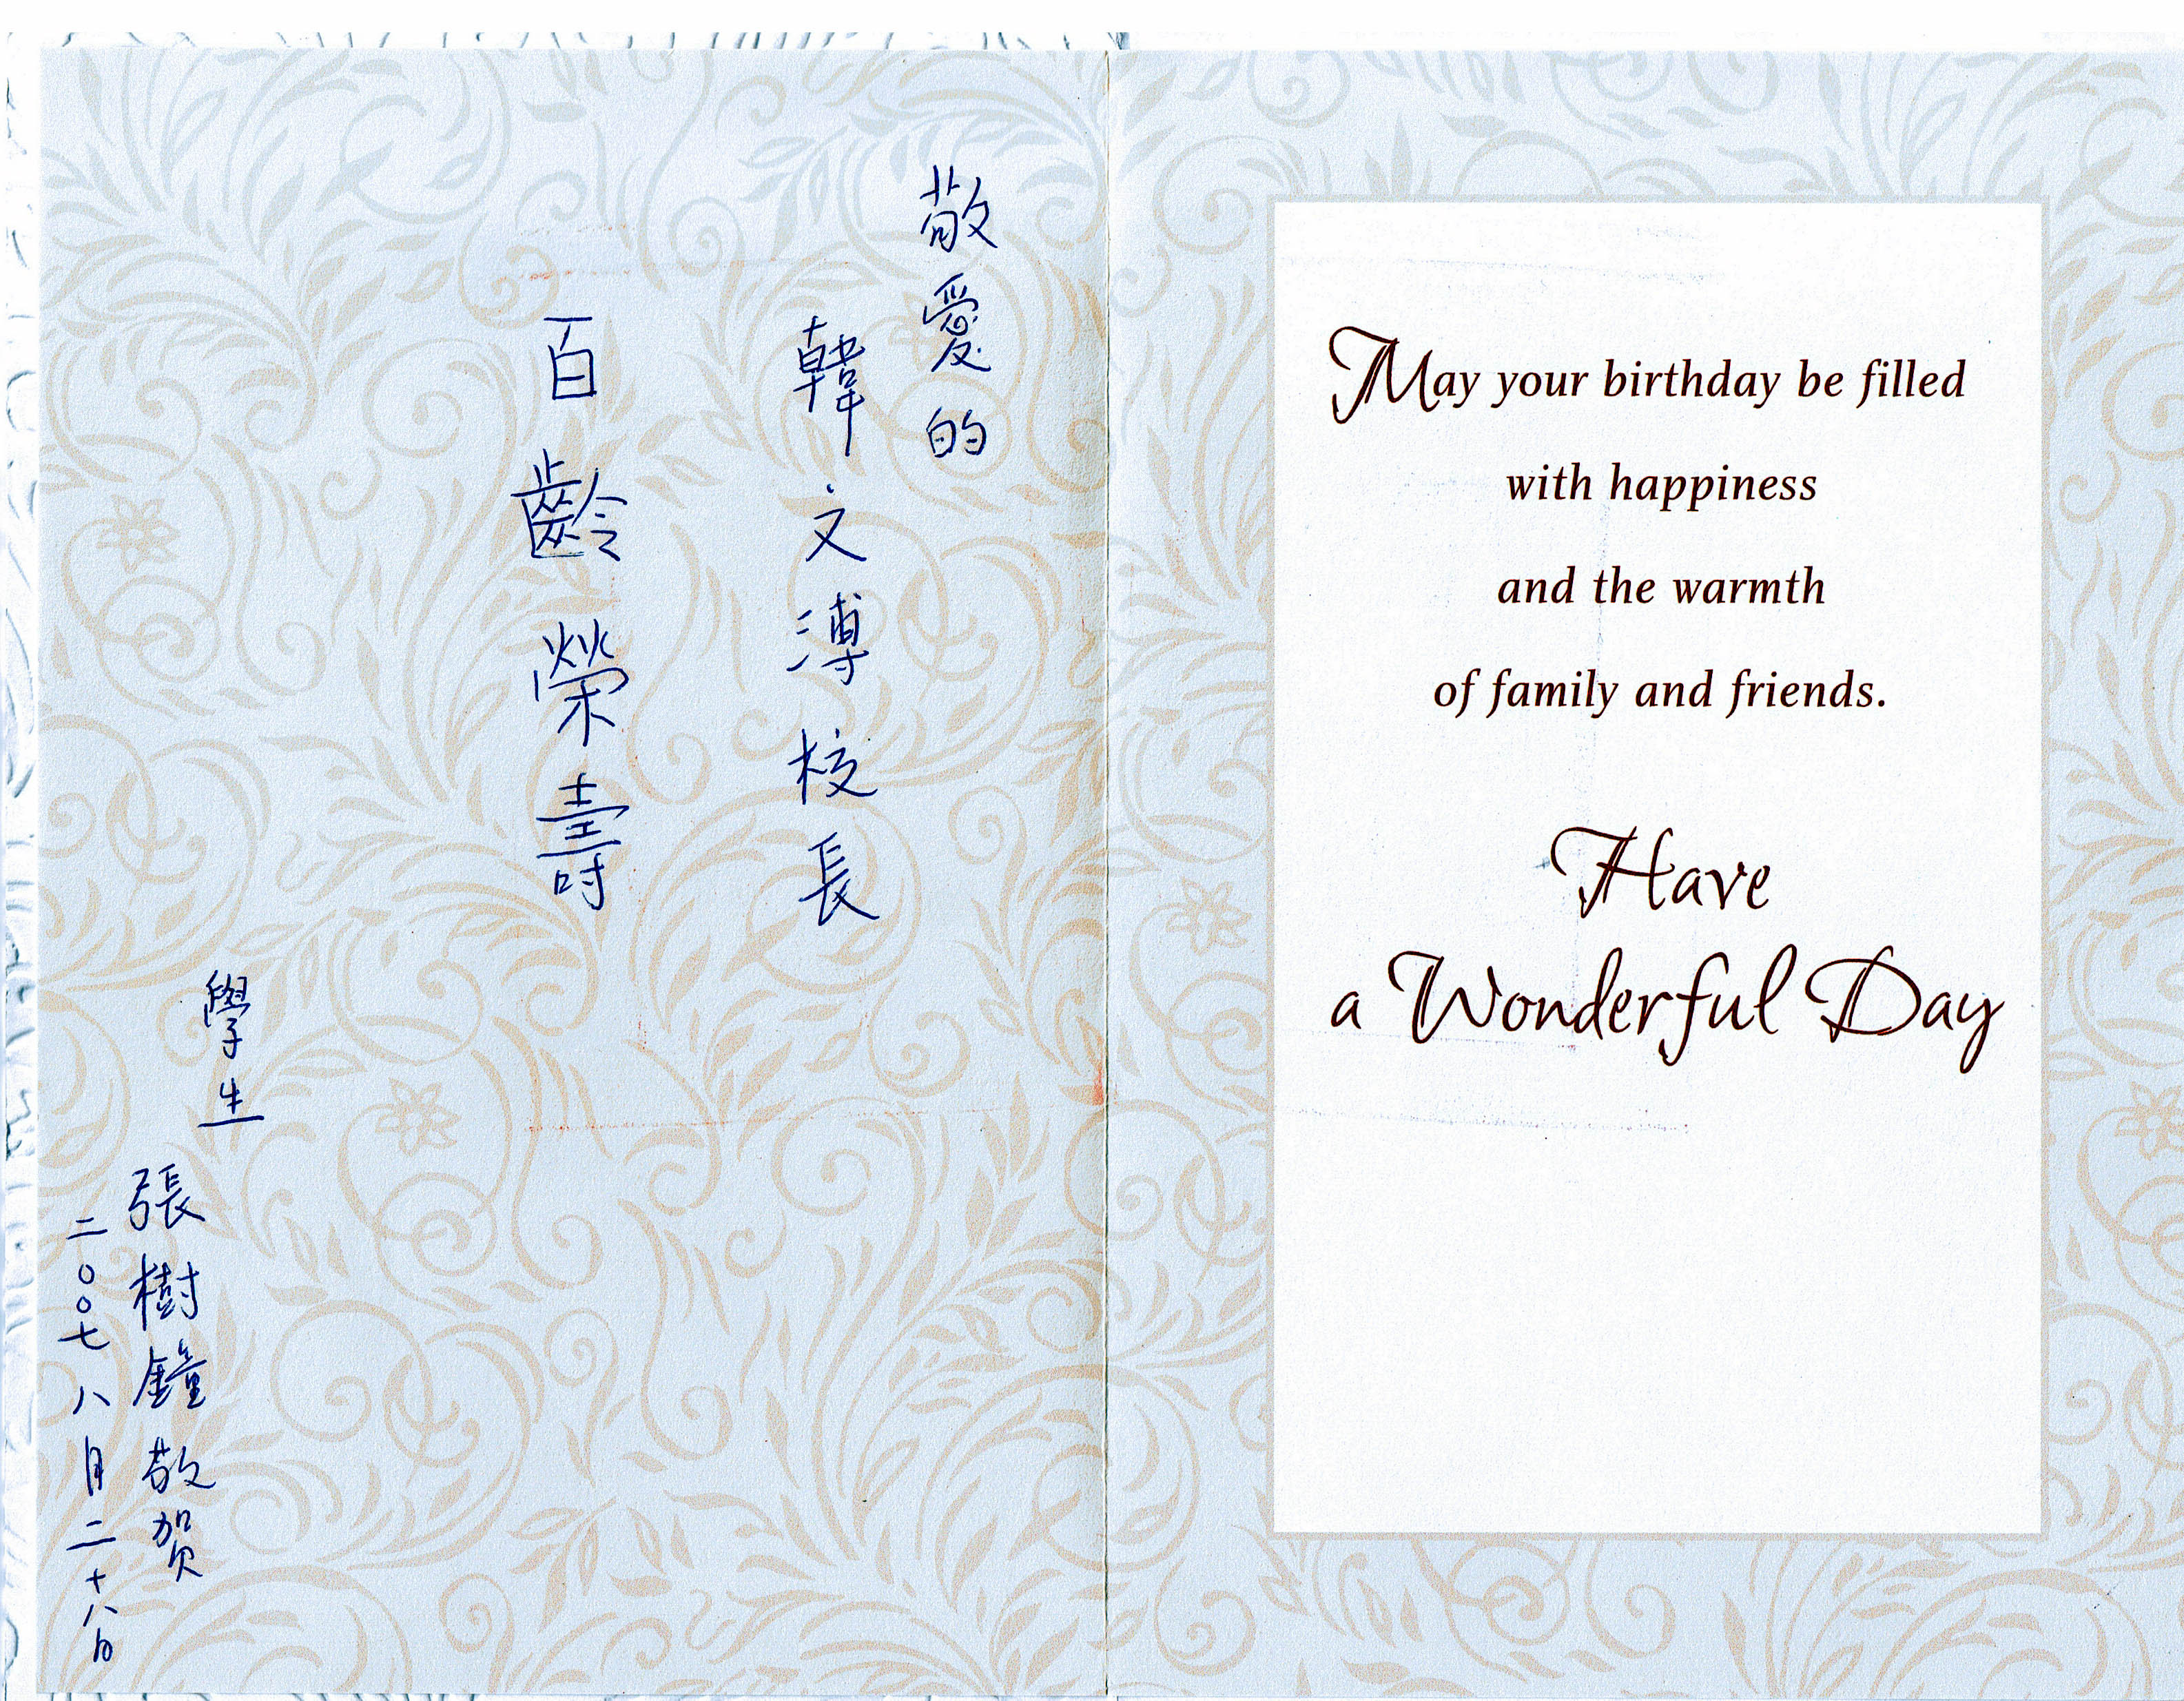 敬愛的
韓文溥校長
百齡榮壽
學生
張樹鐘敬贺
二〇〇七八月二十八日
May your birthday be filled
with happiness
and the warmth
of family and friends.
Have
a Wonderful Day